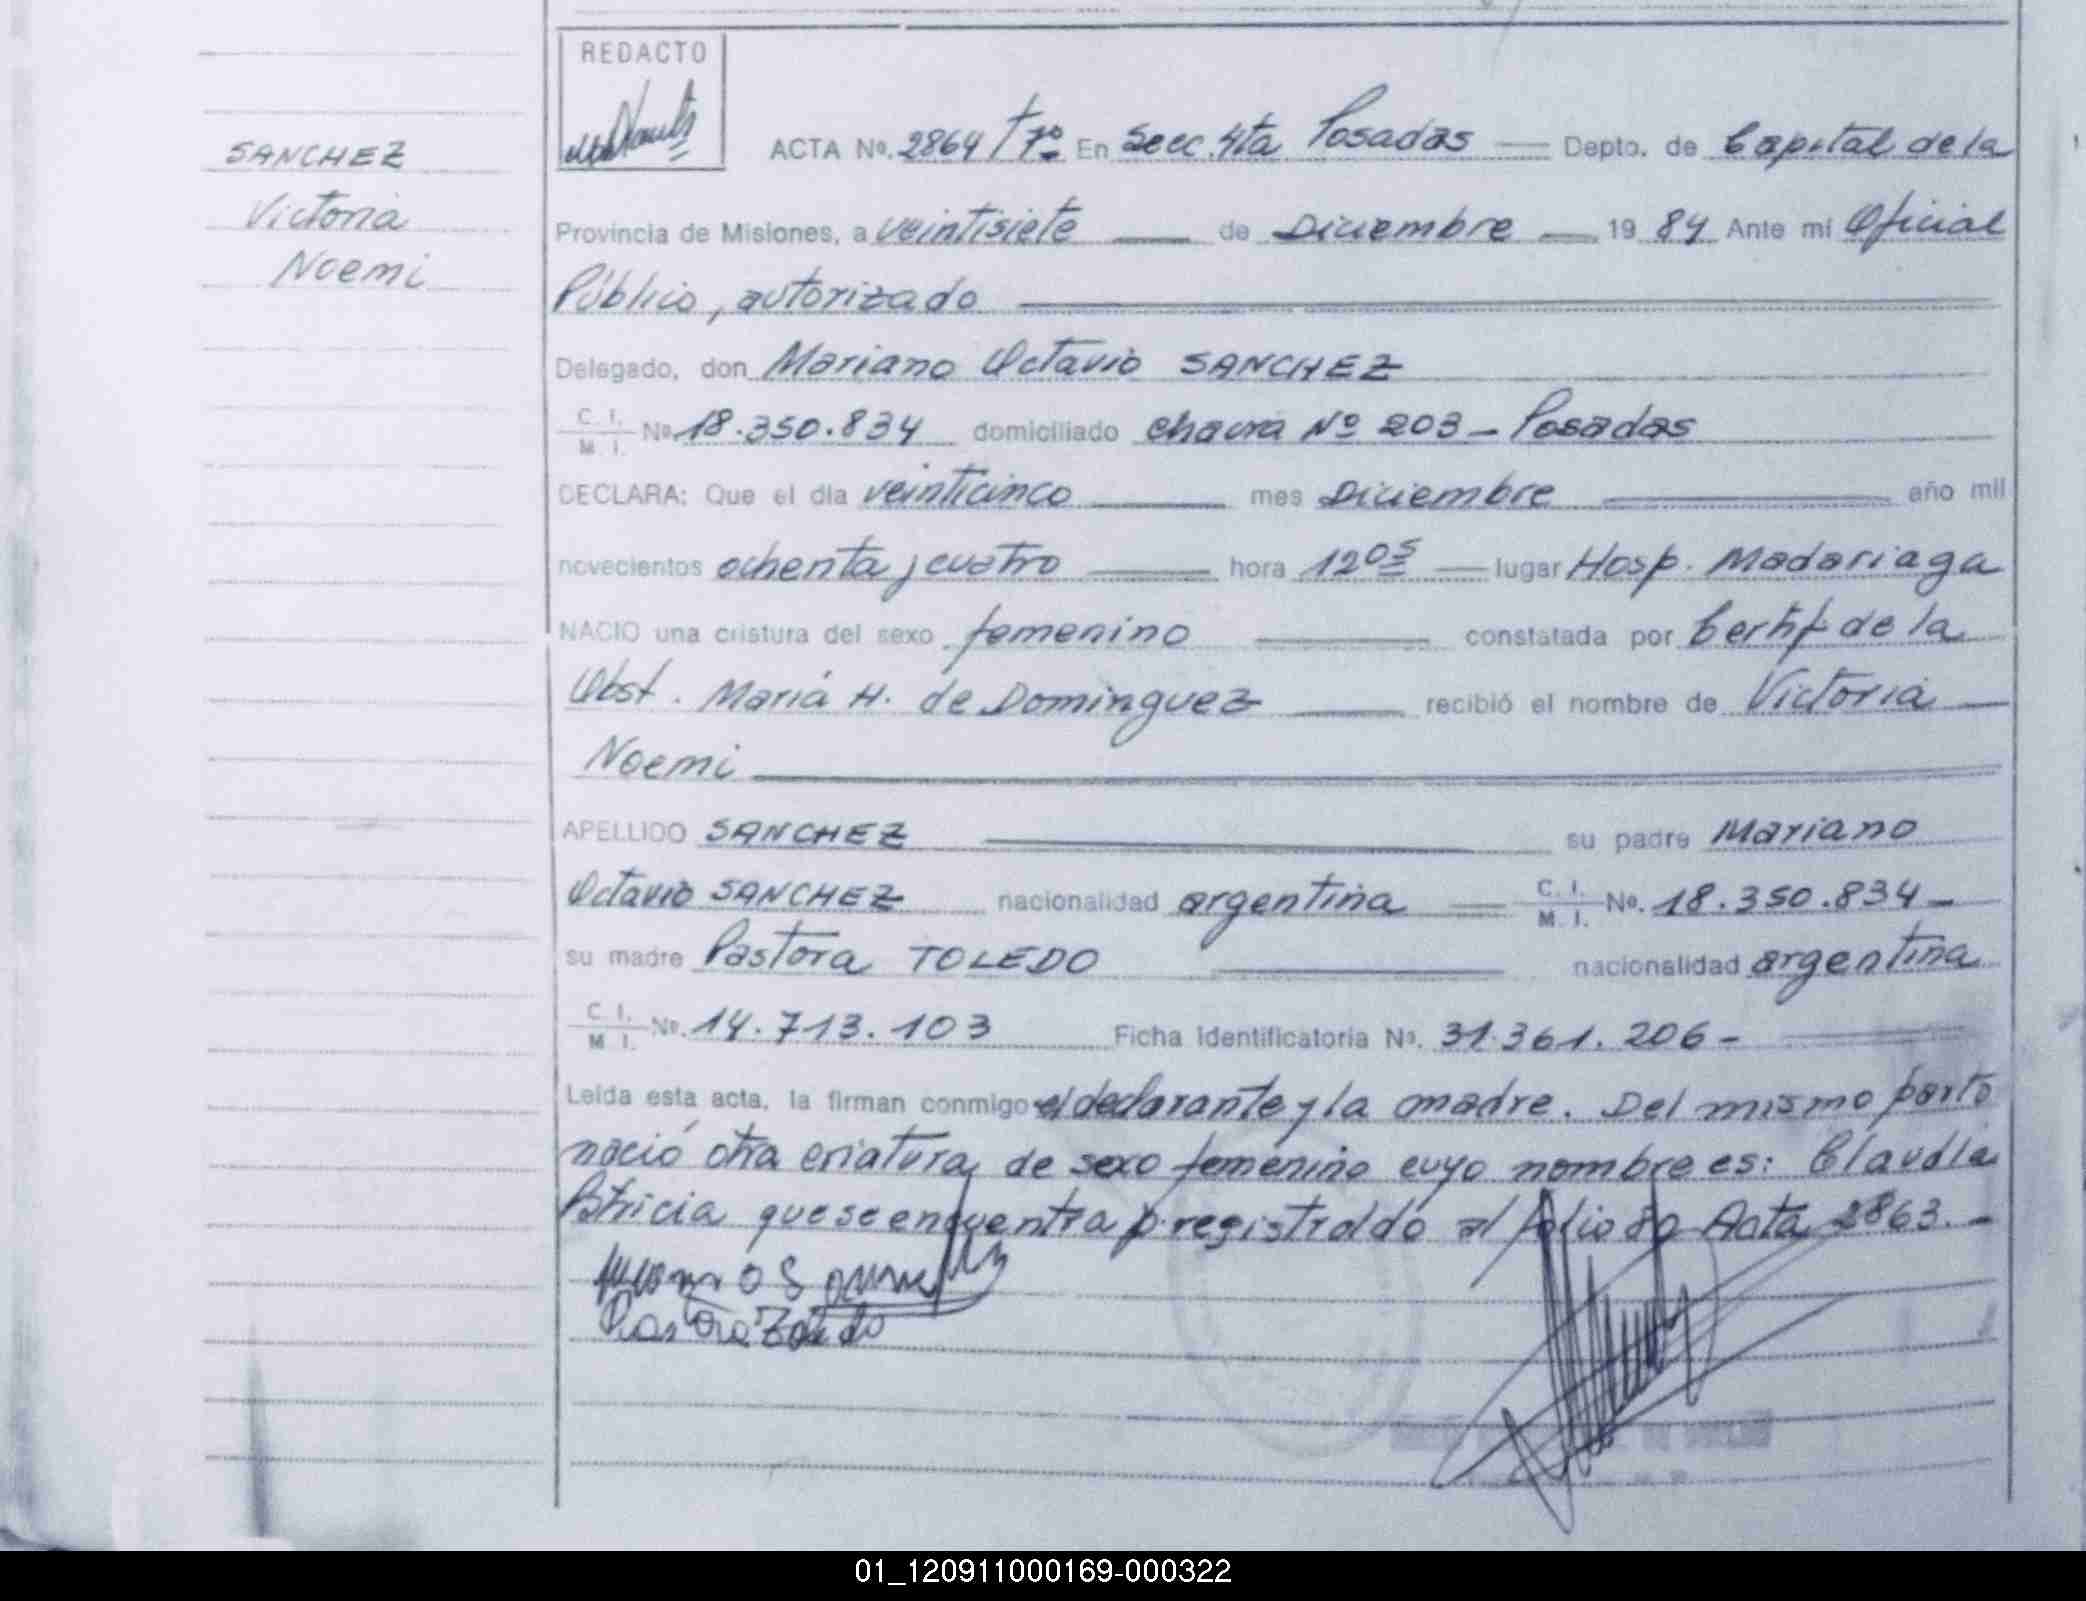 REDACTO
SANCHEZ
Victoria
Noemi
ACTA Nº. 2864 / Tº 7º En Secc. 4ta Posadas Depto. de Capital de la
Provincia de Misiones, a veintisiete de Diciembre 19 84 Ante mi Oficial
Público, autorizado
Delegado, don Mariano Octavio SANCHEZ
C. I.
M. I. Nº 18.350.834 domiciliado chacra Nº 203 - Posadas
DECLARA: Que el dia veinticinco mes Diciembre año mil
novecientos ochenta y cuatro hora 12 05 lugar Hosp. Madariaga
NACIO una criatura del sexo femenino constatada por Certif de la
Obst. Maria H. de Dominguez recibió el nombre de Victoria
Noemi
APELLIDO SANCHEZ su padre Mariano
Octavio SANCHEZ nacionalidad argentina C. I. M. I. Nº. 18.350.834 -
su madre Pastora TOLEDO nacionalidad argentina
C. I.
M. I. Nº. 14.713.103 Ficha Identificatoria Nº. 31.361.206 -
Leida esta acta, la firman conmigo el declarante y la madre. Del mismo parto
nació otra criatura de sexo femenino cuyo nombre es: Claudia
Ptricia que se encuentra registrado al folio Acta 2863. -
01_120911000169-000322